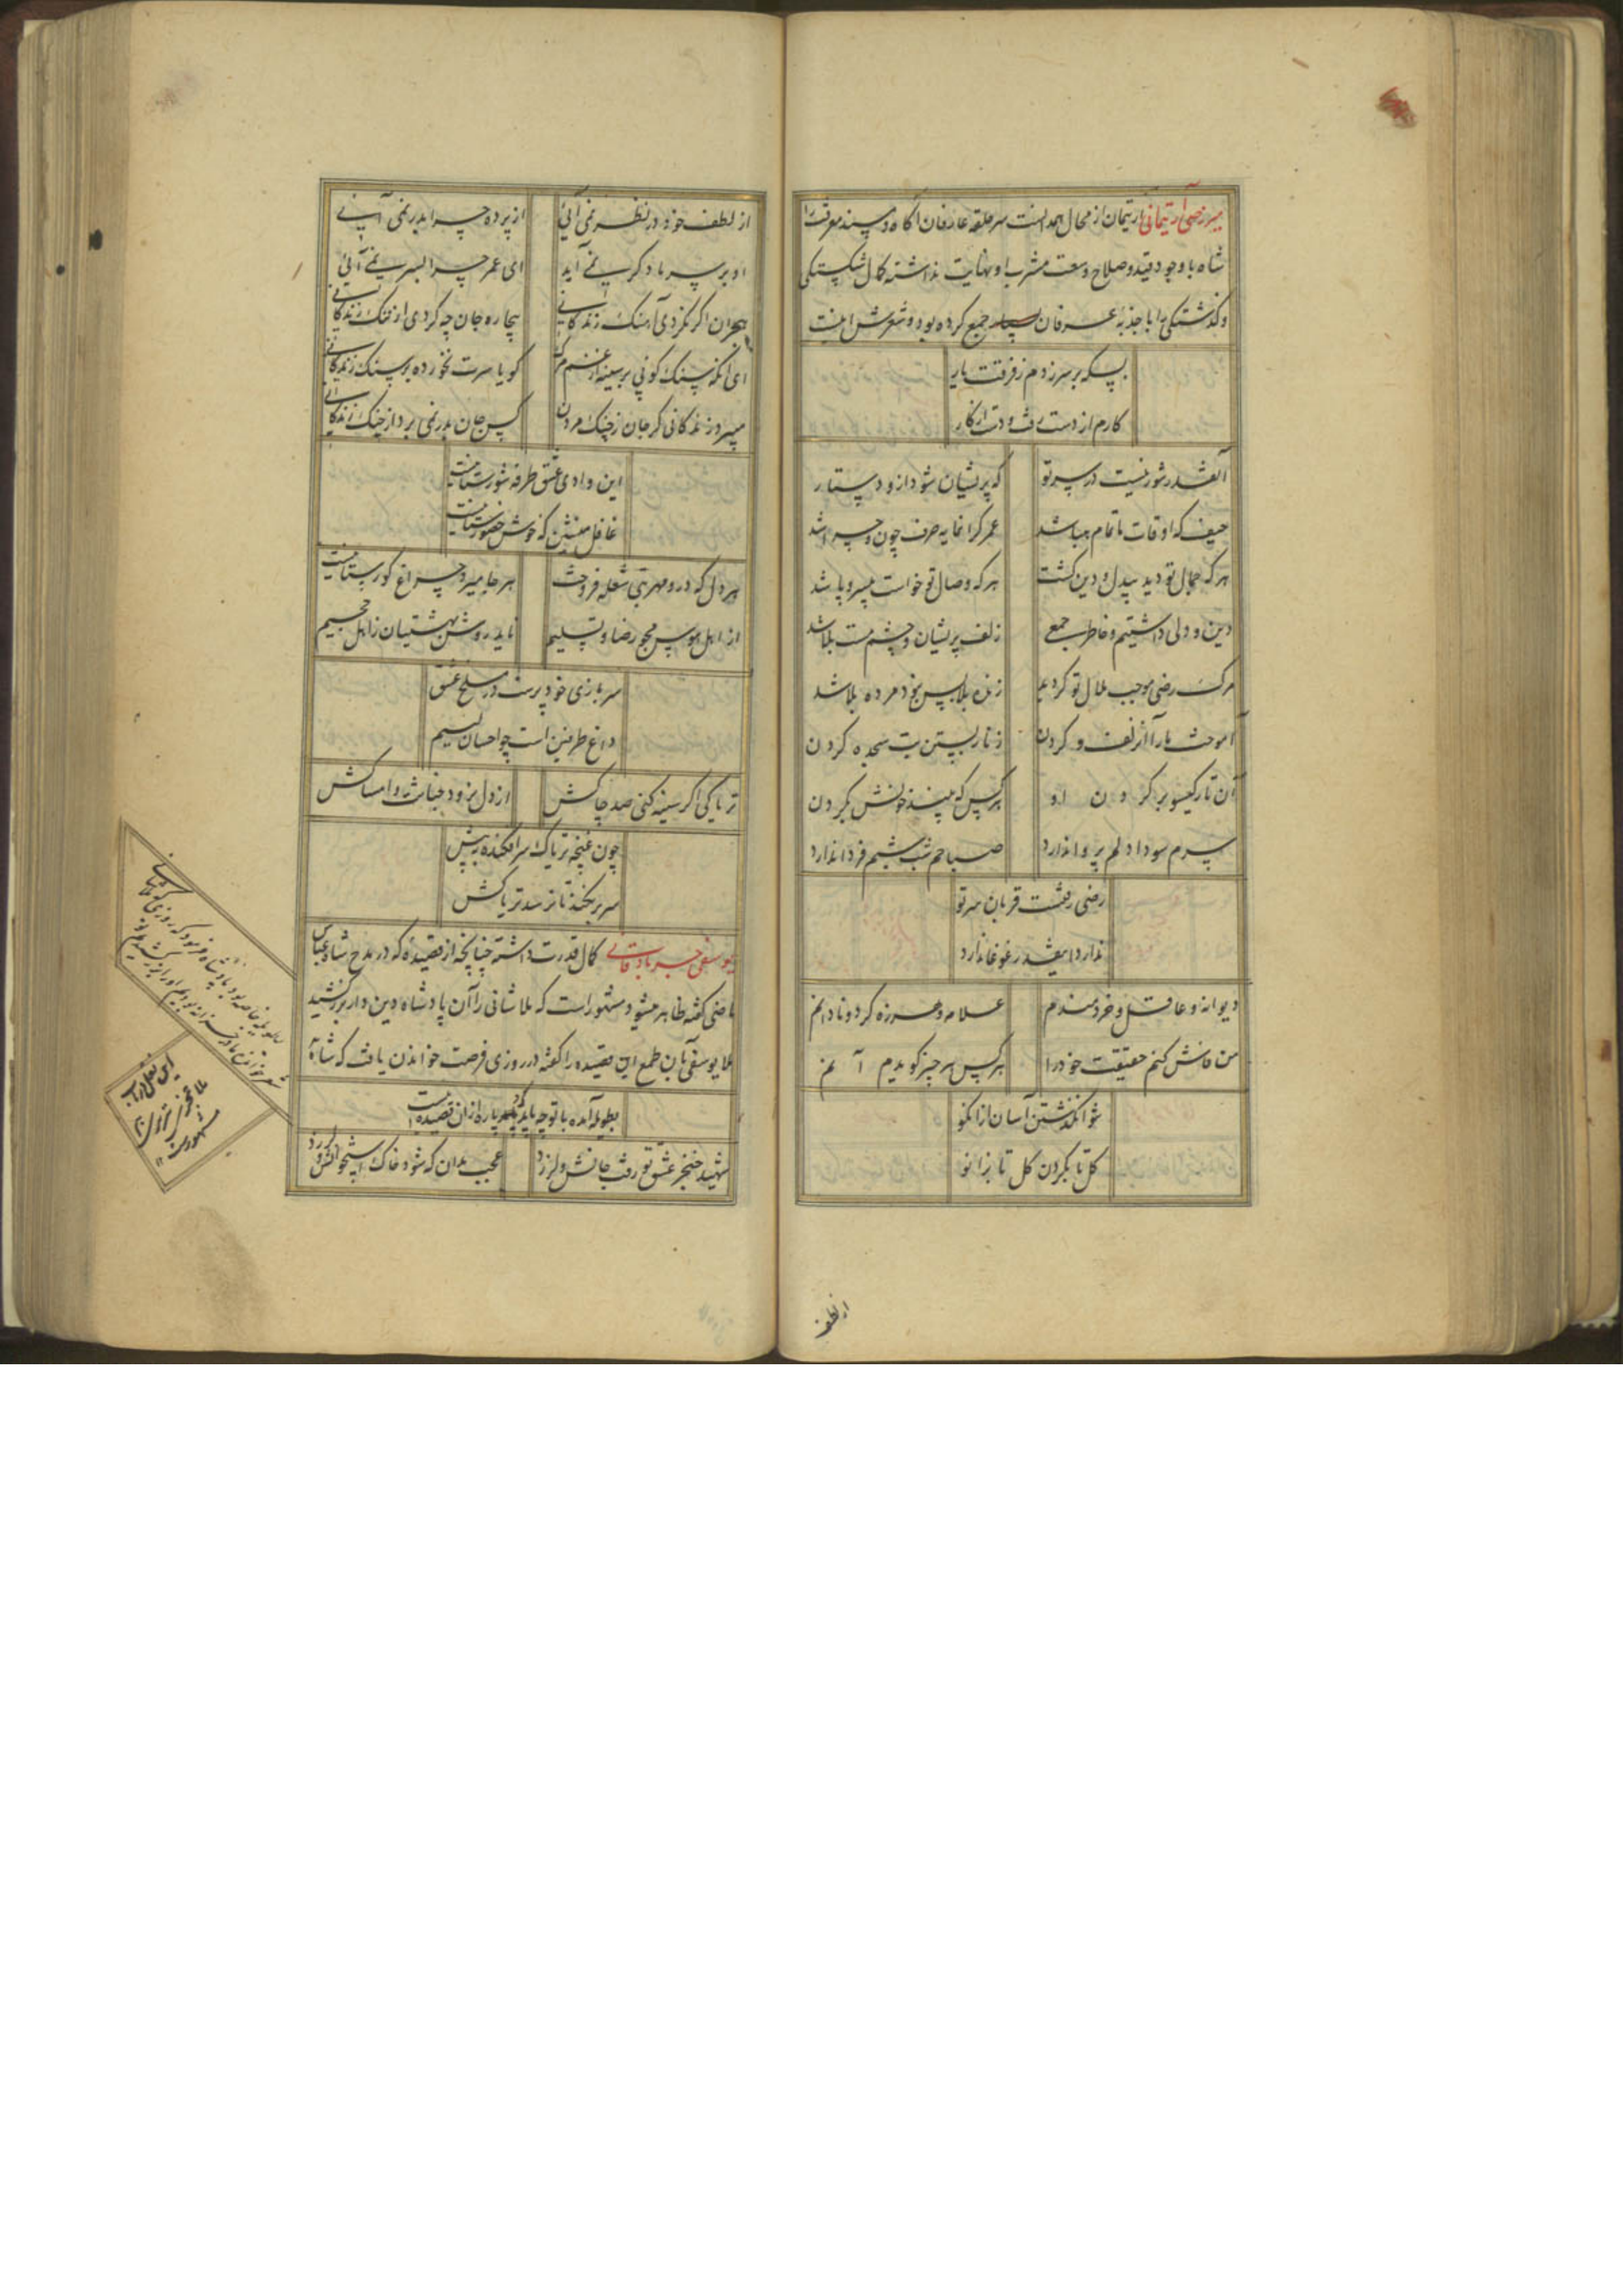 میر رضی آرتیمانی ارتیمان از محال همدانست سر حلقه عارفان آگاه و مسند معرفت را
شاه باوجود قید و صلاح وسعت مشرب او نهایت نداشته کمال شکستگی
و گذشتگی را با جذبه عرفان جمع کرده بود و شعرش اینست
بسکه بر سر زدم ز فرقت یار
کارم از دست رفت و دست از کار
آنقدر شور نیست در سر تو که پریشان شود ازو دستار
حیف که اوقات ما تمام هبا شد عمر گرانمایه صرف چون و چرا شد
هر که جمال تو دید بیدل و دین گشت هر که وصال تو خواست بیسر و پا شد
دین و دلی داشتیم و خاطر جمع زلف پریشان و چشم مست بلا شد
مرگ رضی موجب ملال تو گردید زنده بلا بس نبود مرده بلا شد
آموخت ما را آن زلف و گردن زنار بستن بت سجده کردن
آن تار گیسو بر گردن او هر کس که بیند خونش بگردن
سرم سودا دلم پروا ندارد صباحم شب شبم فردا ندارد
رضی رفتست قربان سر تو
ندارد اینقدر غوغا ندارد
دیوانه و عاقل و خردمندم علامه و هرزه گرد و نادانم
من فاش کنم حقیقت خود را هر کس هر چیز گویدم آنم
شو انگذشتن آسان از انکو
گل تا بگردن گل تا بزانو
از لطف
از لطف خود در نظر نمی آئی از پرده چرا بدر نمی آئی
او بر سر باد گر نمی آید ای عمر چرا بسر نمی آئی
هجران اگر نکردی آهنگ زندگانی بیچاره جان چه کردی از ننگ زندگانی
ای آنکه سنگ کوبی بر سینه از غم مرگ گویا سرت نخورده بر سنگ زندگانی
میرد ز زندگانی گر جان ز چنگ مردن کس جان بدر نمی برد از چنگ زندگانی
این وادی عشق طرفه شورستانیست
غافل منشین که خوش حضورستانیست
هر دل که درو مهر بتی شعله فروخت هر جا میرد چراغ گورستانیست
از اهل هوس مجو رضا و تسلیم ناید روش بهشتیان ز اهل جحیم
سر بازی خود پرست در مسلخ عشق
داغ طرفین است چو احسان لئیم
تریاکی اگر سینه کنی صد چاکش از دل نرود خباثت و امساکش
چون غنچه تریاک سر افکنده به پیش
سر بر نکند تا نرسد تریاکش
یوسفی جربادقانی کمال قدرت داشته چنانچه از قصیده که در مدح شاه عباس
ماضی گفته ظاهر میشود مشهور است که ملا شانی را آن پادشاه دین دار بزر کشید
ملا یوسفی بآن طمع این قصیده را گفته در روزی فرصت خواندن یافت که شاه
بطویله آمده با توجه پاره از ان قصیده اینست
شهید خنجر عشق تو رفت جانش و لرزد عجب مدان که شود خاک استخوانش و لرزد
این نقل در باب